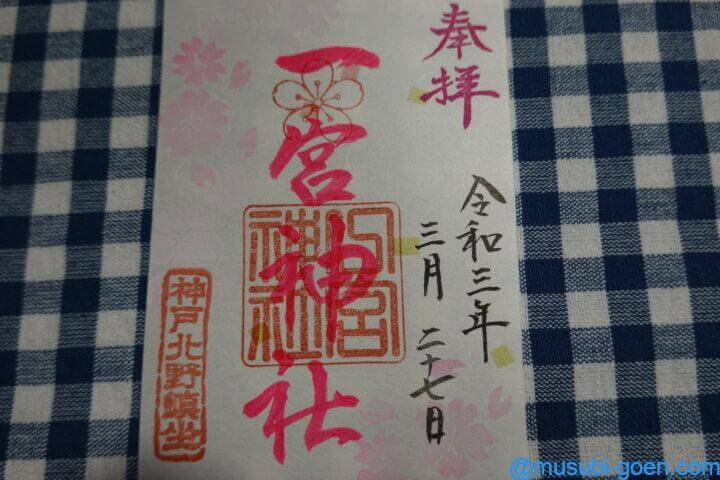 奉拝
令和三年
三月 二十七日
一宮神社
宮
神社
神戸北野鎮坐
@musubi-goen.com